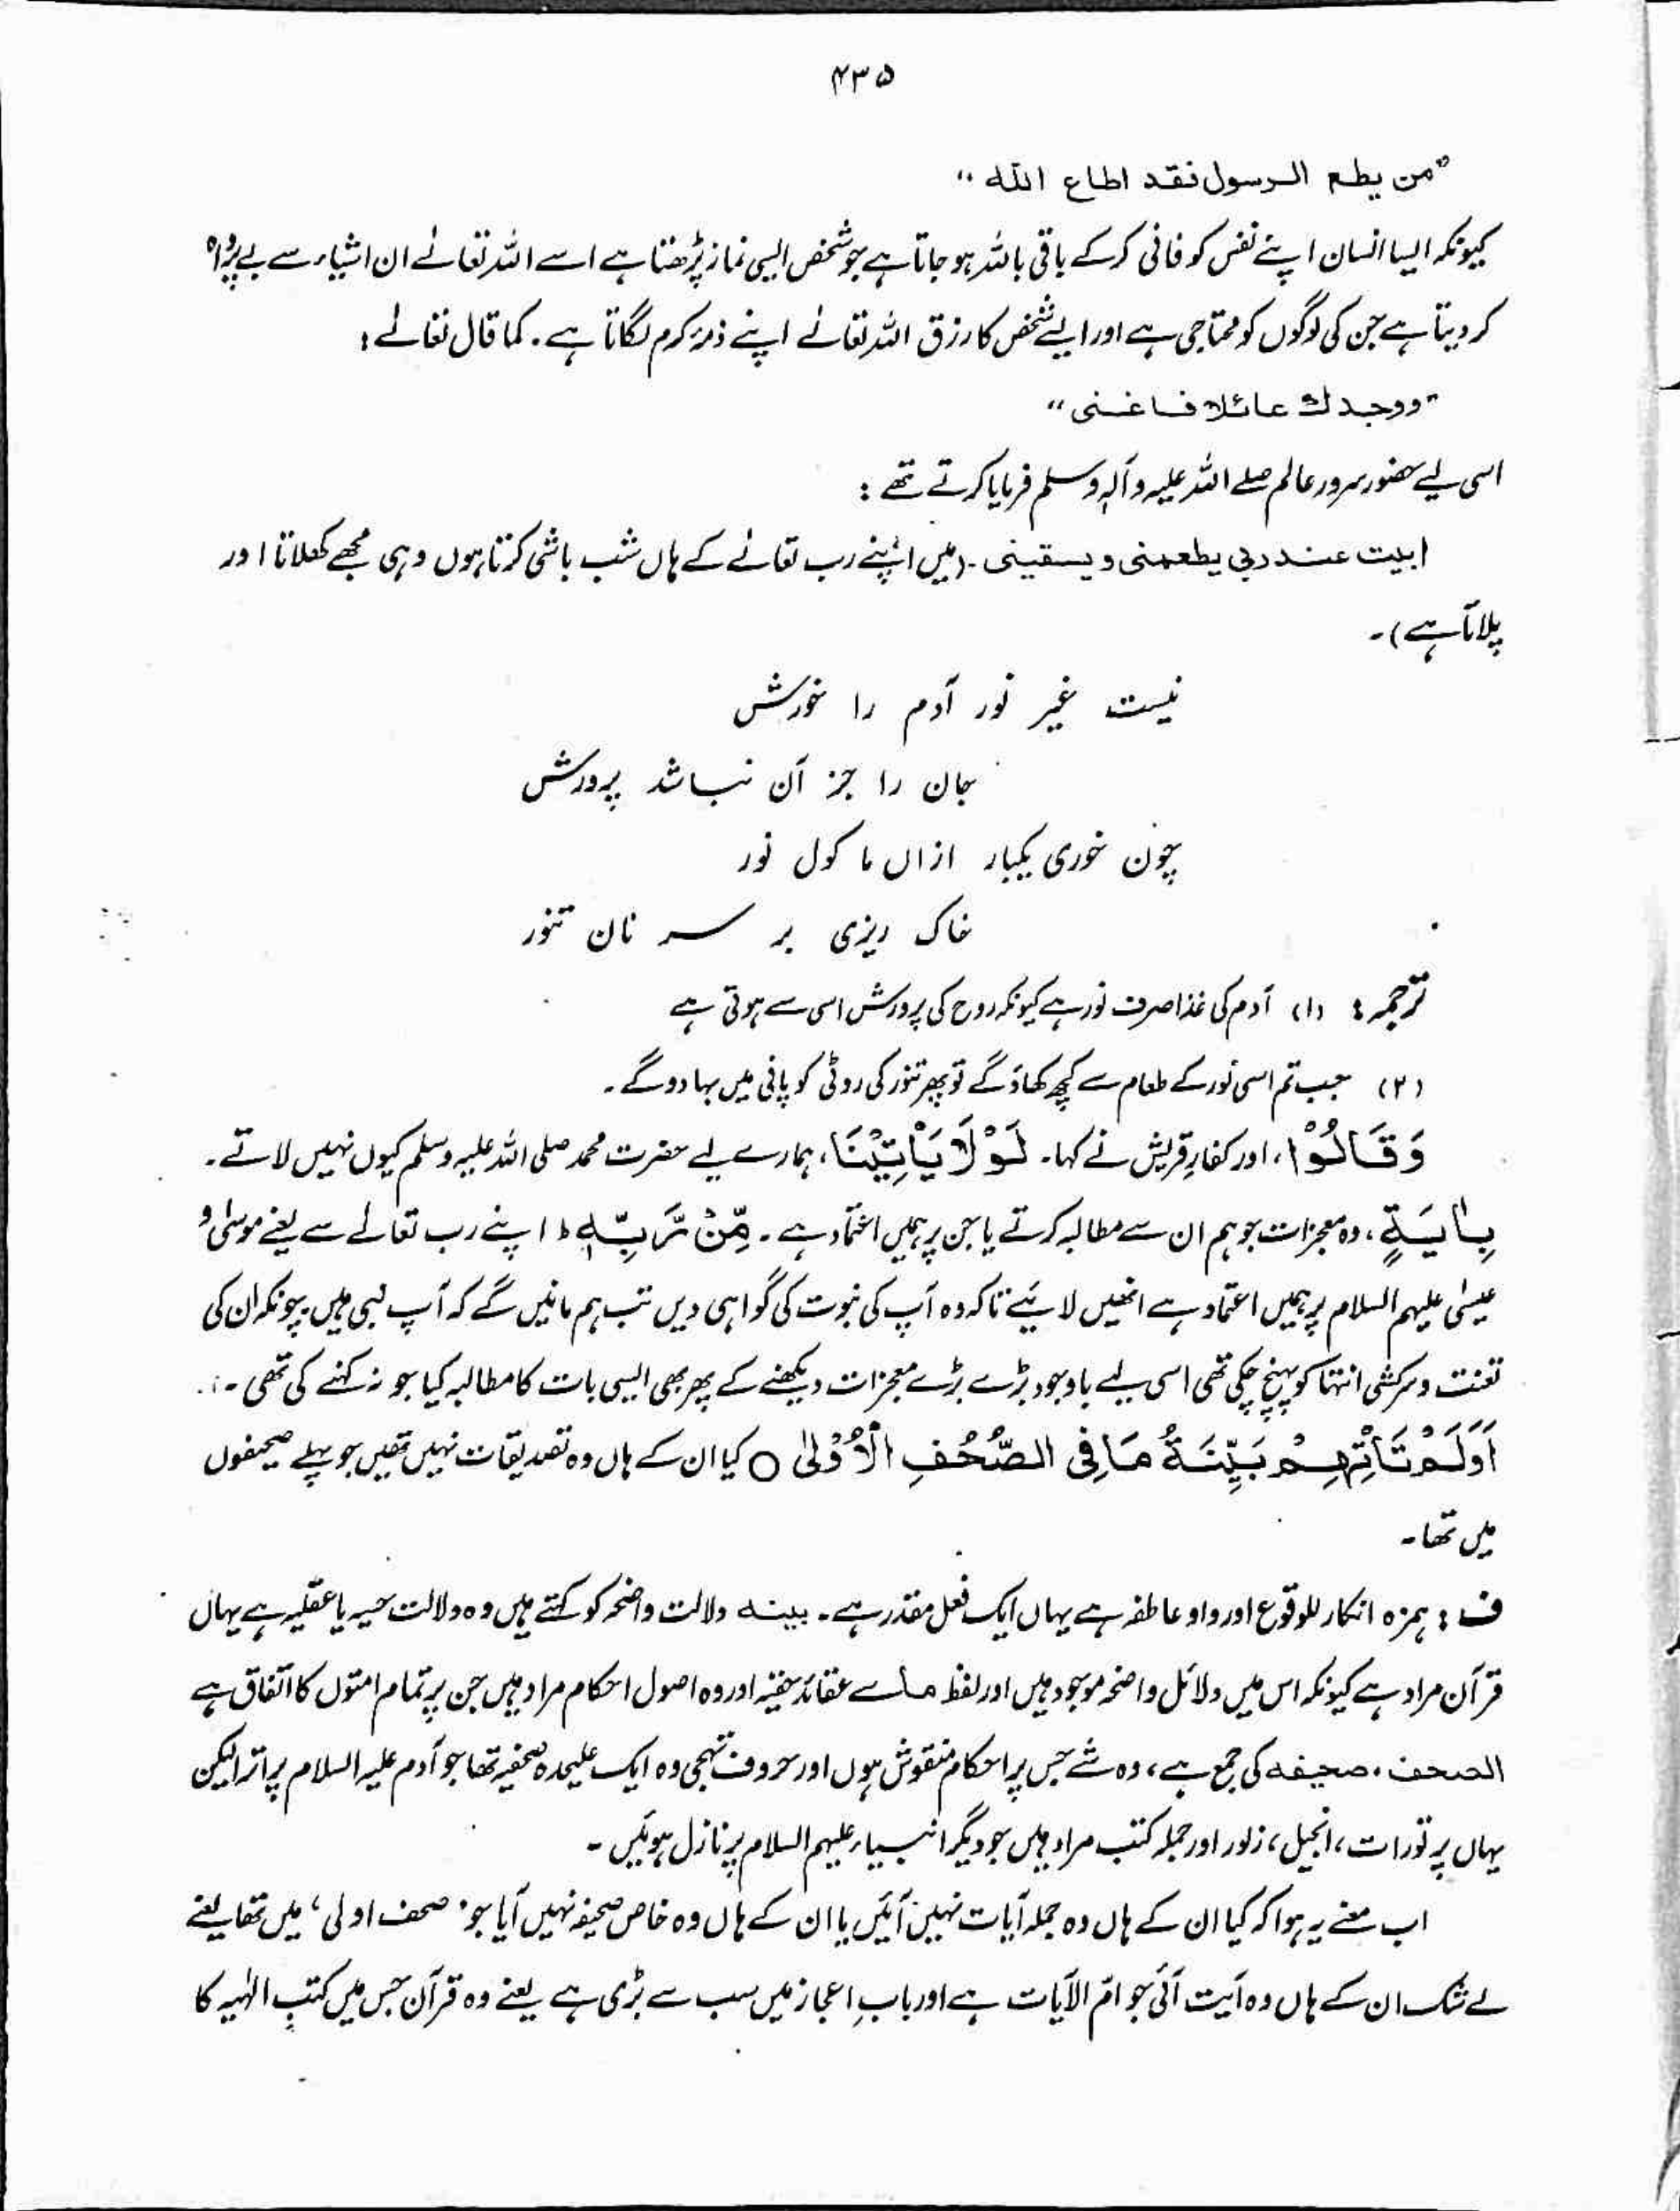 ۴۳۵
"من يطع الرسول فقد اطاع الله"
کیونکہ ایسا انسان اپنے نفس کو فانی کرکے باقی باللہ ہو جاتا ہے جو شخص ایسی نماز پڑھتا ہے اسے اللہ تعالےٰ ان اشیاء سے بے پرواہ
کر دیتا ہے جن کی لوگوں کو محتاجی ہے اور ایسے شخص کا رزق اللہ تعالےٰ اپنے ذمۂ کرم لگاتا ہے۔ کما قال تعالےٰ :
"ووجدك عائلا فاغنى"
اسی لیے حضور سرور عالم صلے اللہ علیہ وآلہٖ وسلم فرمایا کرتے تھے :
ابيت عند ربي يطعمنى ويسقينى۔ (میں اپنے رب تعالےٰ کے ہاں شب باشی کرتا ہوں وہی مجھے کھلاتا اور
پلاتا ہے)۔
نیست غیر نور آدم را خورش
جان را جز آن نباشد پرورش
چون خوری یکبار ازاں ماکول نور
خاک ریزی بر سر نان تنور
ترجمہ : (۱) آدم کی غذا صرف نور ہے کیونکہ روح کی پرورش اسی سے ہوتی ہے
(۲) جب تم اسی نور کے طعام سے کچھ کھاؤ گے تو پھر تنور کی روٹی کو پانی میں بہا دو گے۔
وَقَالُوْا، اور کفارِ قریش نے کہا۔ لَوْلَا يَاْتِيْنَا، ہمارے لیے حضرت محمد صلی اللہ علیہ وسلم کیوں نہیں لاتے۔
بِاٰيَةٍ، وہ معجزات جو ہم ان سے مطالبہ کرتے یا جن پر ہمیں اعتماد ہے۔ مِّنْ رَّبِّهٖ ط اپنے رب تعالےٰ سے یعنے موسیٰ و
عیسیٰ علیہم السلام پر ہمیں اعتماد ہے انھیں لائیے تاکہ وہ آپ کی نبوت کی گواہی دیں تب ہم مانیں گے کہ آپ نبی ہیں۔ چونکہ ان کی
تعنت و سرکشی انتہا کو پہنچ چکی تھی اسی لیے باوجود بڑے بڑے معجزات دیکھنے کے پھر بھی ایسی بات کا مطالبہ کیا جو نہ کہنے کی تھی۔
اَوَلَمْ تَاْتِهِمْ بَيِّنَةُ مَا فِى الصُّحُفِ الْاُوْلٰى ○ کیا ان کے ہاں وہ تصدیقات نہیں تھیں جو پہلے صحیفوں
میں تھا۔
ف : ہمزہ انکار للوقوع اور واو عاطفہ ہے یہاں ایک فعل مقدر ہے۔ بینہ دلالت واضحہ کو کہتے ہیں وہ دلالت حسیہ یا عقلیہ ہے یہاں
قرآن مراد ہے کیونکہ اس میں دلائل واضحہ موجود ہیں اور لفظ ما سے عقائد حقیہ اور وہ اصول احکام مراد ہیں جن پر تمام امتوں کا اتفاق ہے
الصحف، صحیفہ کی جمع ہے، وہ شے جس پر احکام منقوش ہوں اور حروف تہجی وہ ایک علیحدہ صحیفہ تھا جو آدم علیہ السلام پر اترا لیکن
یہاں پر تورات، انجیل، زبور اور جملہ کتب مراد ہیں جو دیگر انبیاء علیہم السلام پر نازل ہوئیں۔
اب معنے یہ ہوا کہ کیا ان کے ہاں وہ جملہ آیات نہیں آئیں یا ان کے ہاں وہ خاص صحیفہ نہیں آیا جو 'صحف اولی' میں تھا یعنے
بے شک ان کے ہاں وہ آیت آئی جو امّ الآیات ہے اور بابِ اعجاز میں سب سے بڑی ہے یعنے وہ قرآن جس میں کتبِ الٰہیہ کا